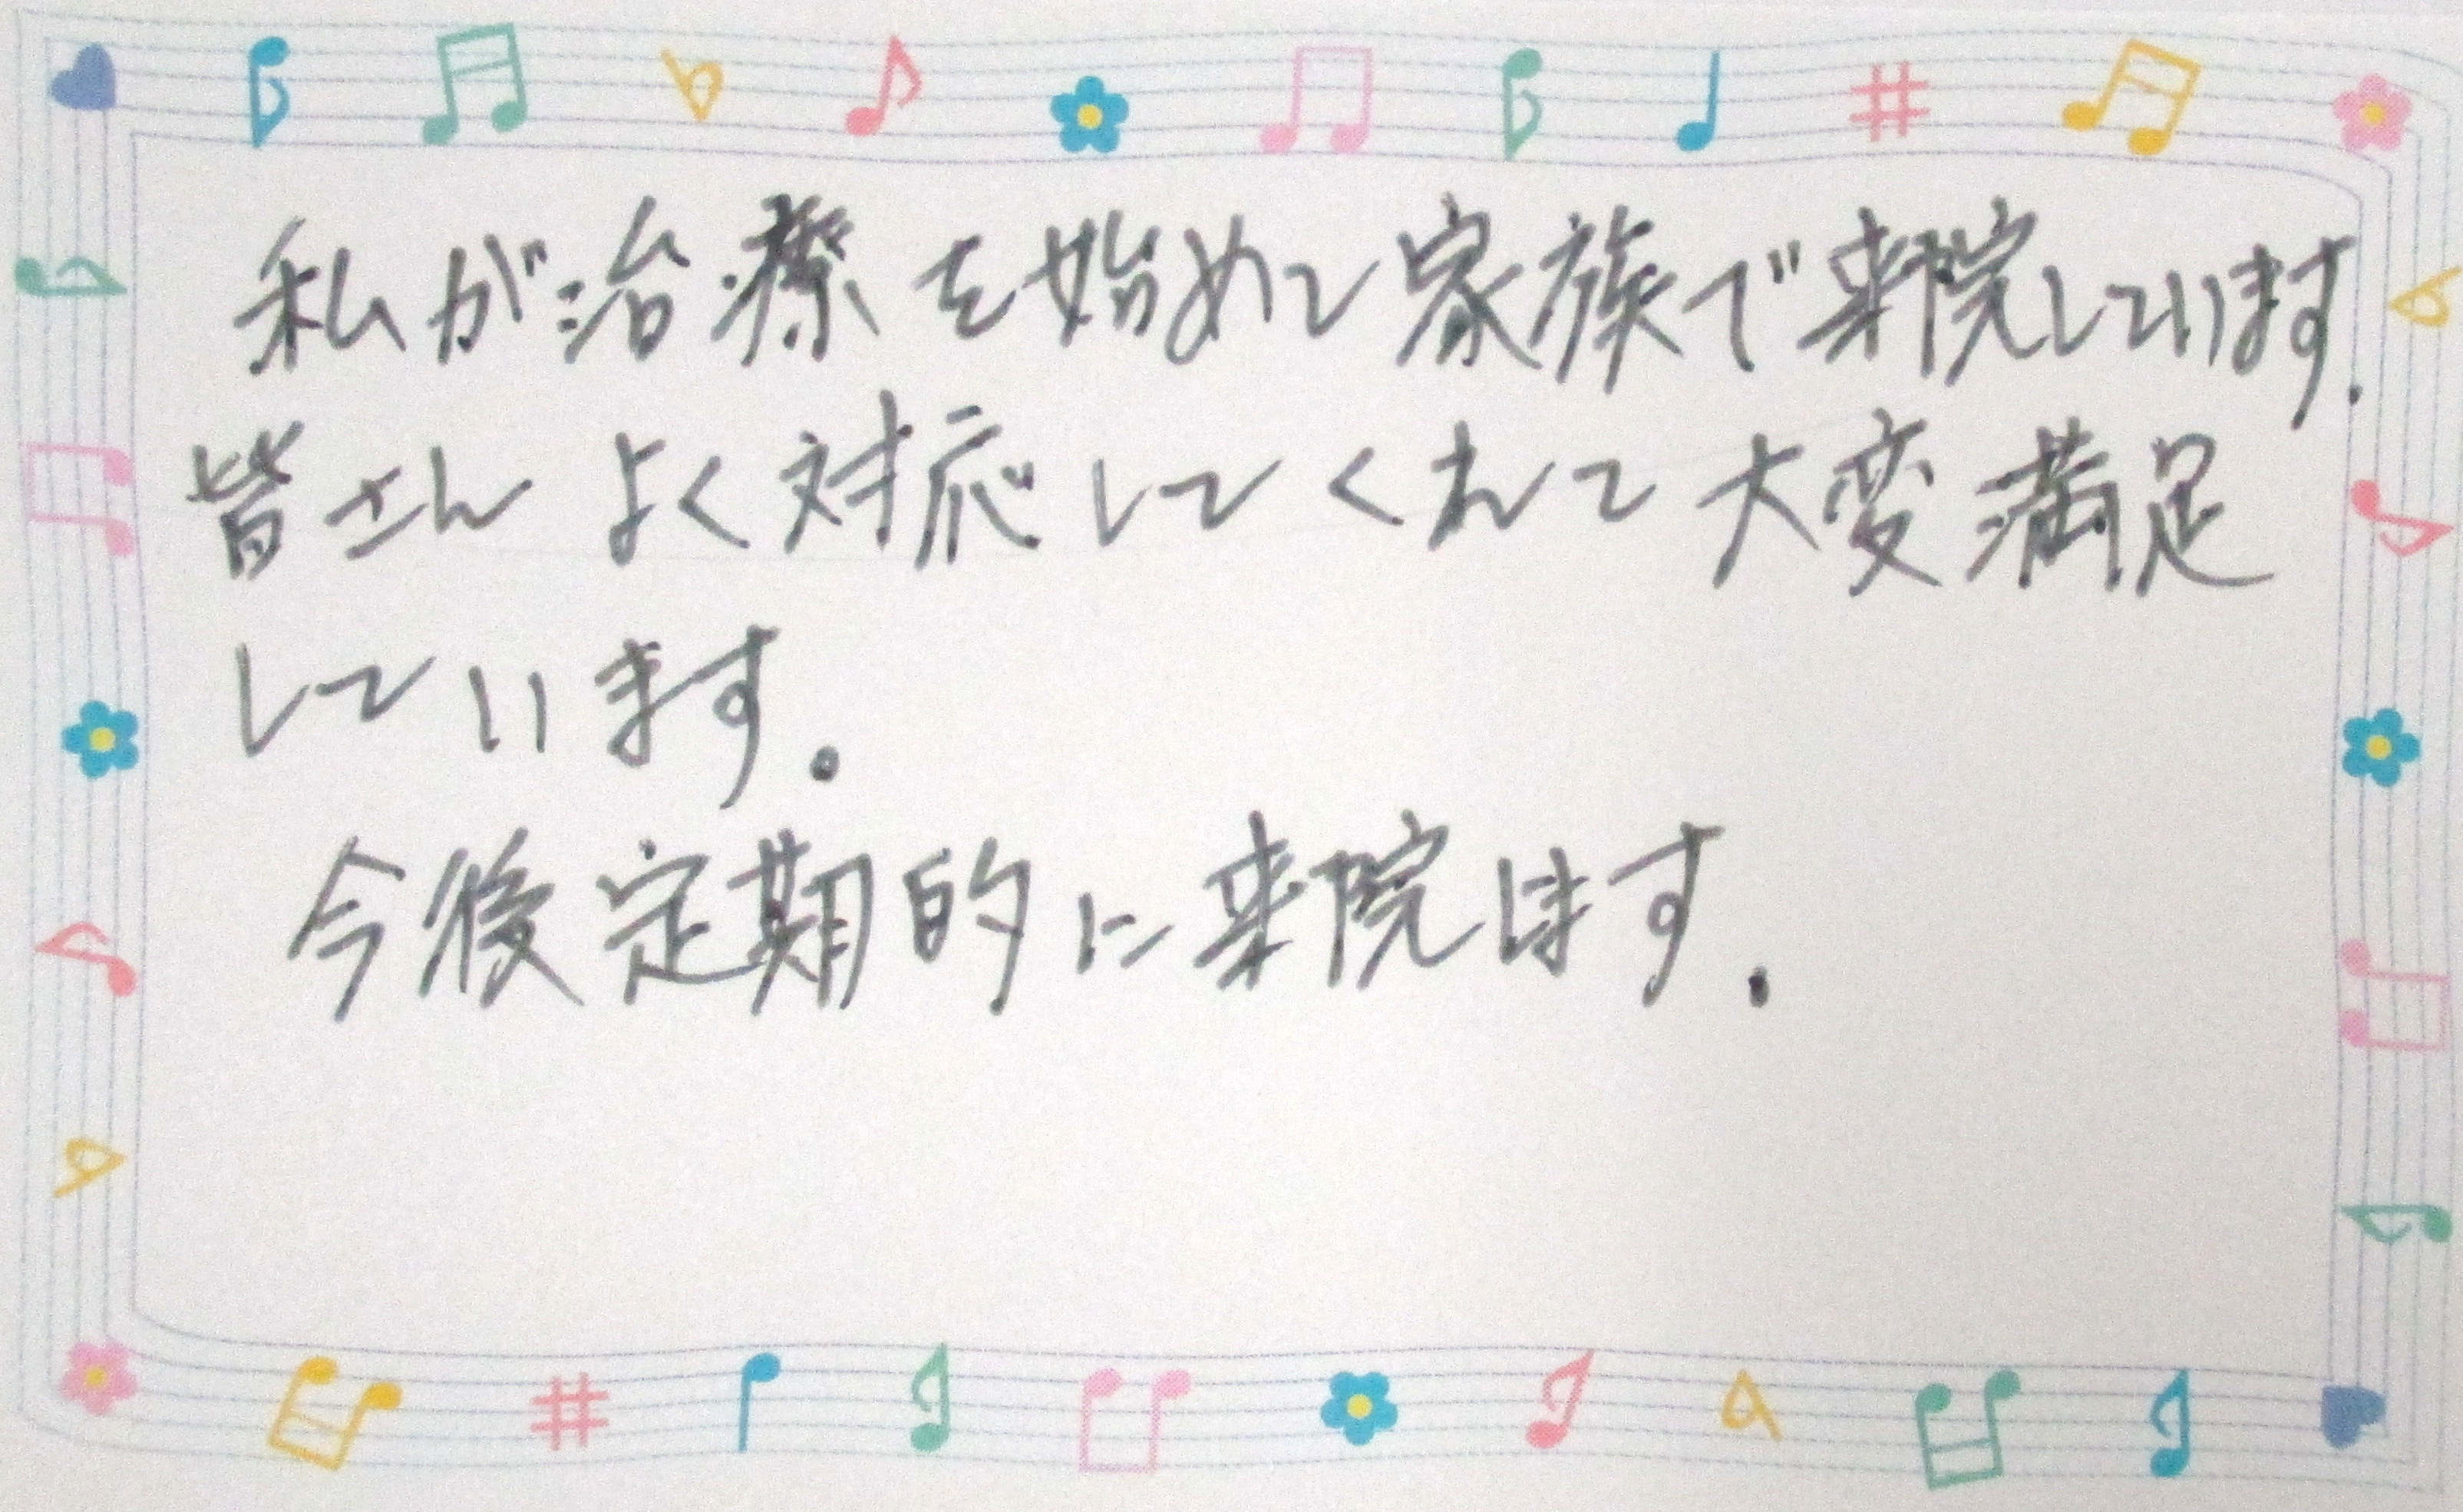 私が治療を始めて家族で来院しています.
皆さんよく対応してくれて大変満足
しています。
今後定期的に来院します.